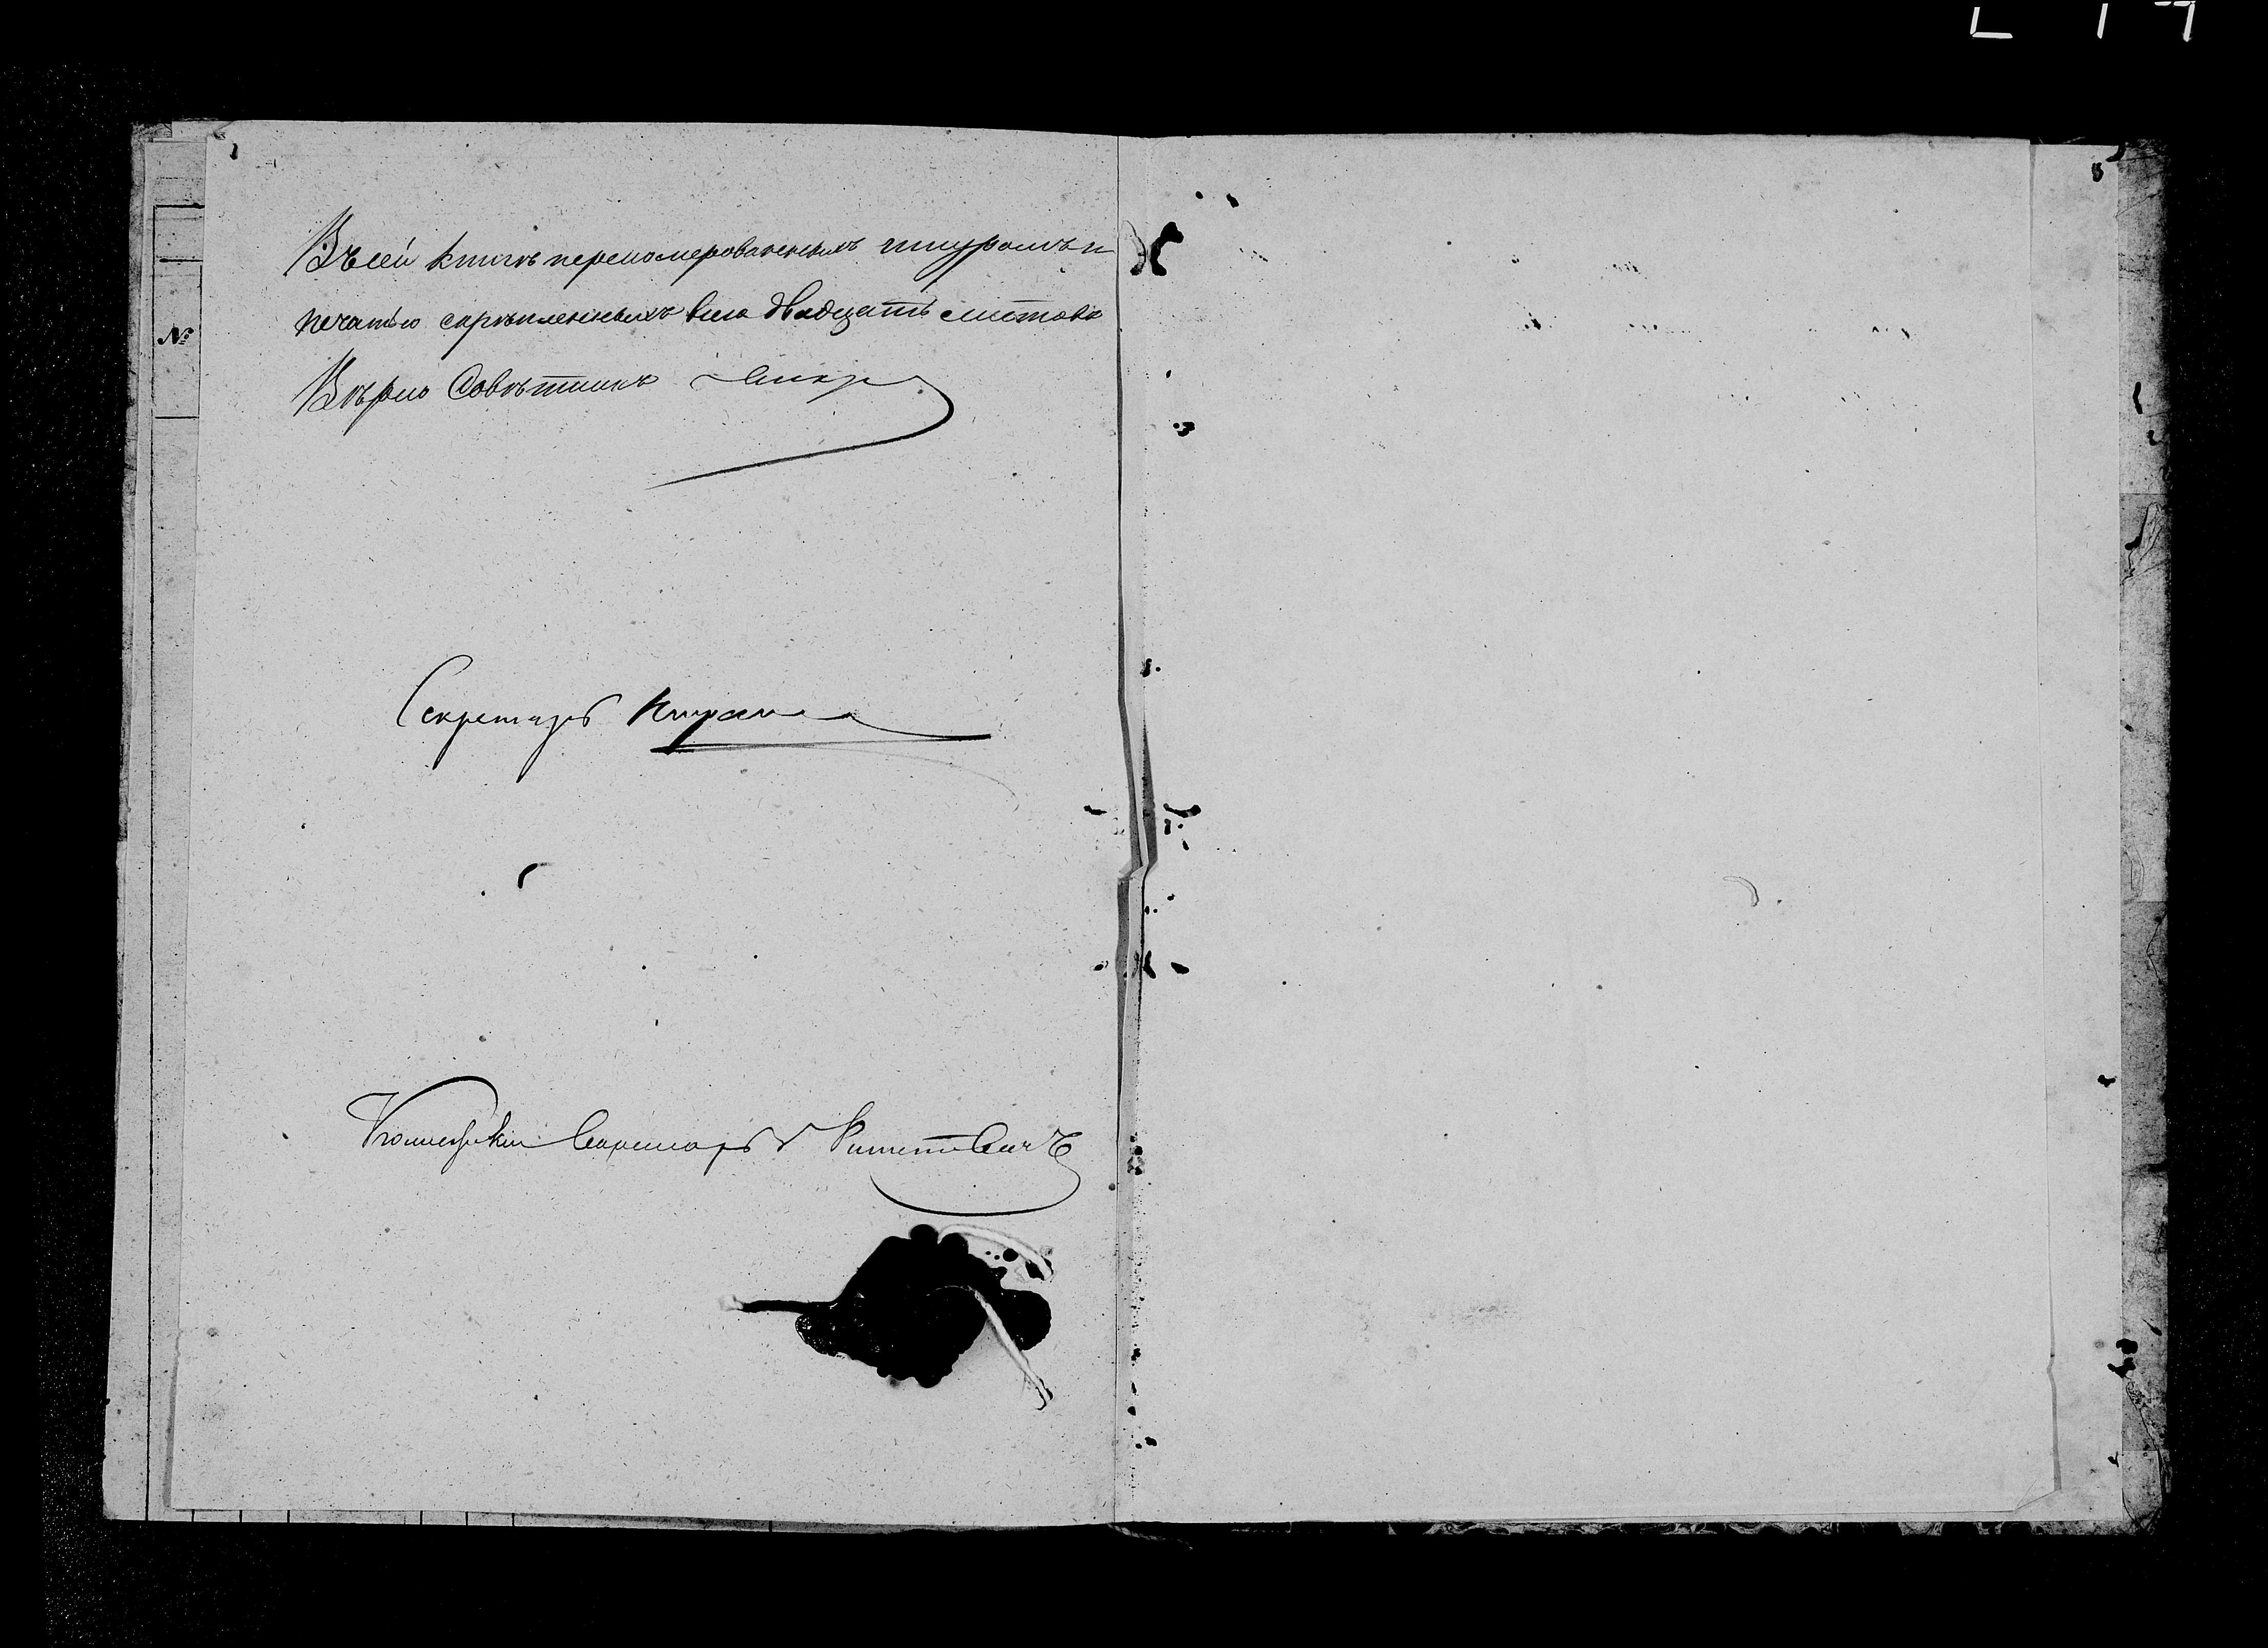 Въ сей книгѣ перенумерованныхъ шнуромъ и
печатью скрѣпленныхъ всего двадцать листовъ
Вѣрно Совѣтникъ
Секретарь
Коллежскій Секретарь
№